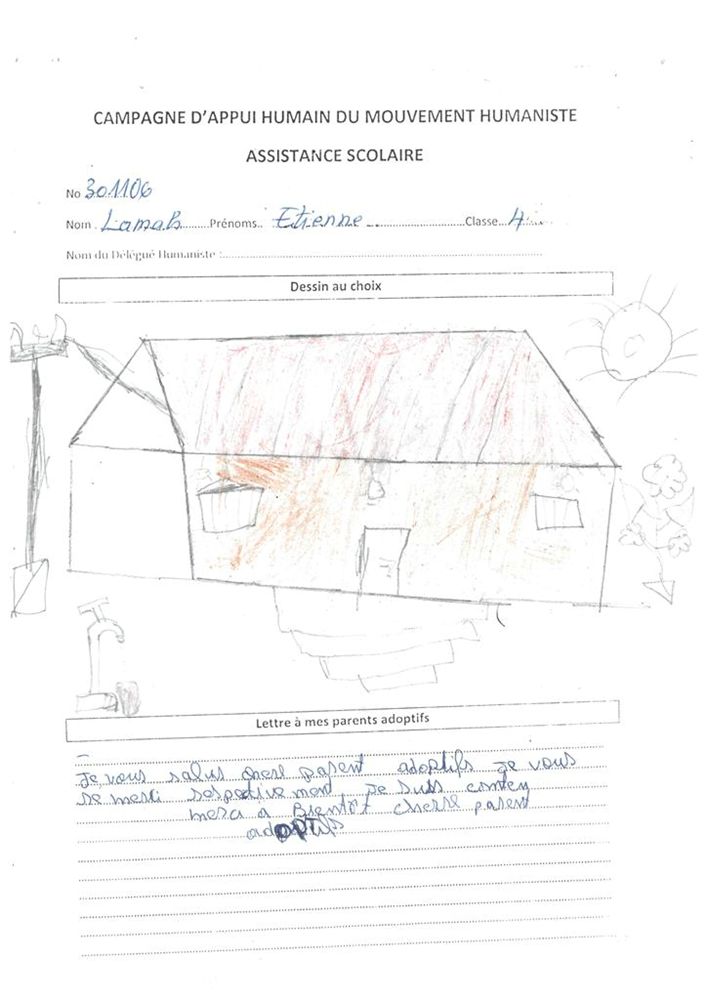 CAMPAGNE D'APPUI HUMAIN DU MOUVEMENT HUMANISTE
ASSISTANCE SCOLAIRE
No 301106
Nom . Lamah.........Prénoms.. Etienne ...........................Classe...4......
Nom du Délégué Humaniste :..........................................................
Dessin au choix
Lettre à mes parents adoptifs
Je vous salus parent adoptifs je vous
merci je suis conten
merci a Bientôt parent
adoptifs